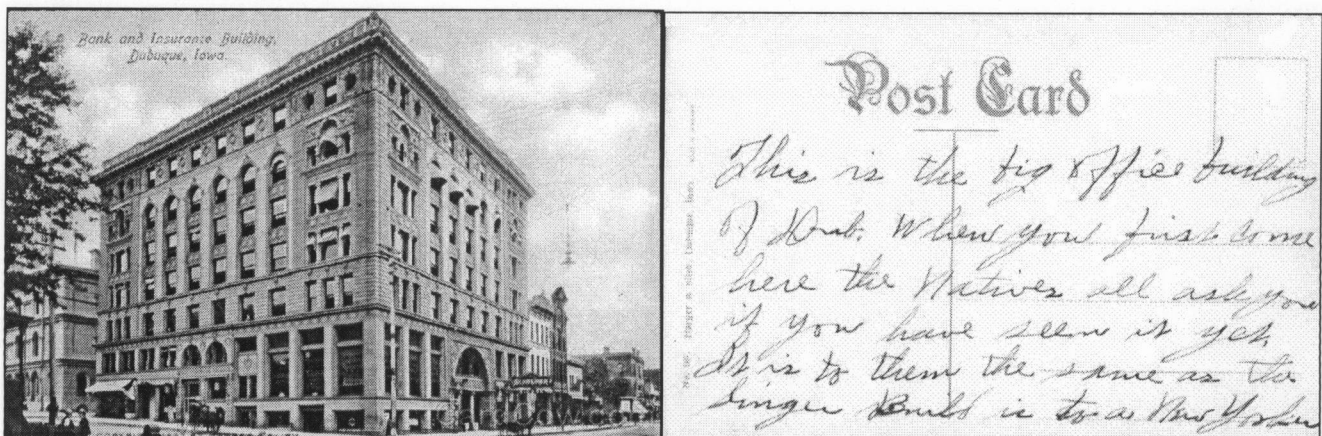 Bank and Insurance Building,
Dubuque, Iowa.
Post Card
This is the big office building
of Dub. When you first come
here the Natives all ask you
if you have seen it yet
It is to them the same as the
Singer Build is to a New Yorker